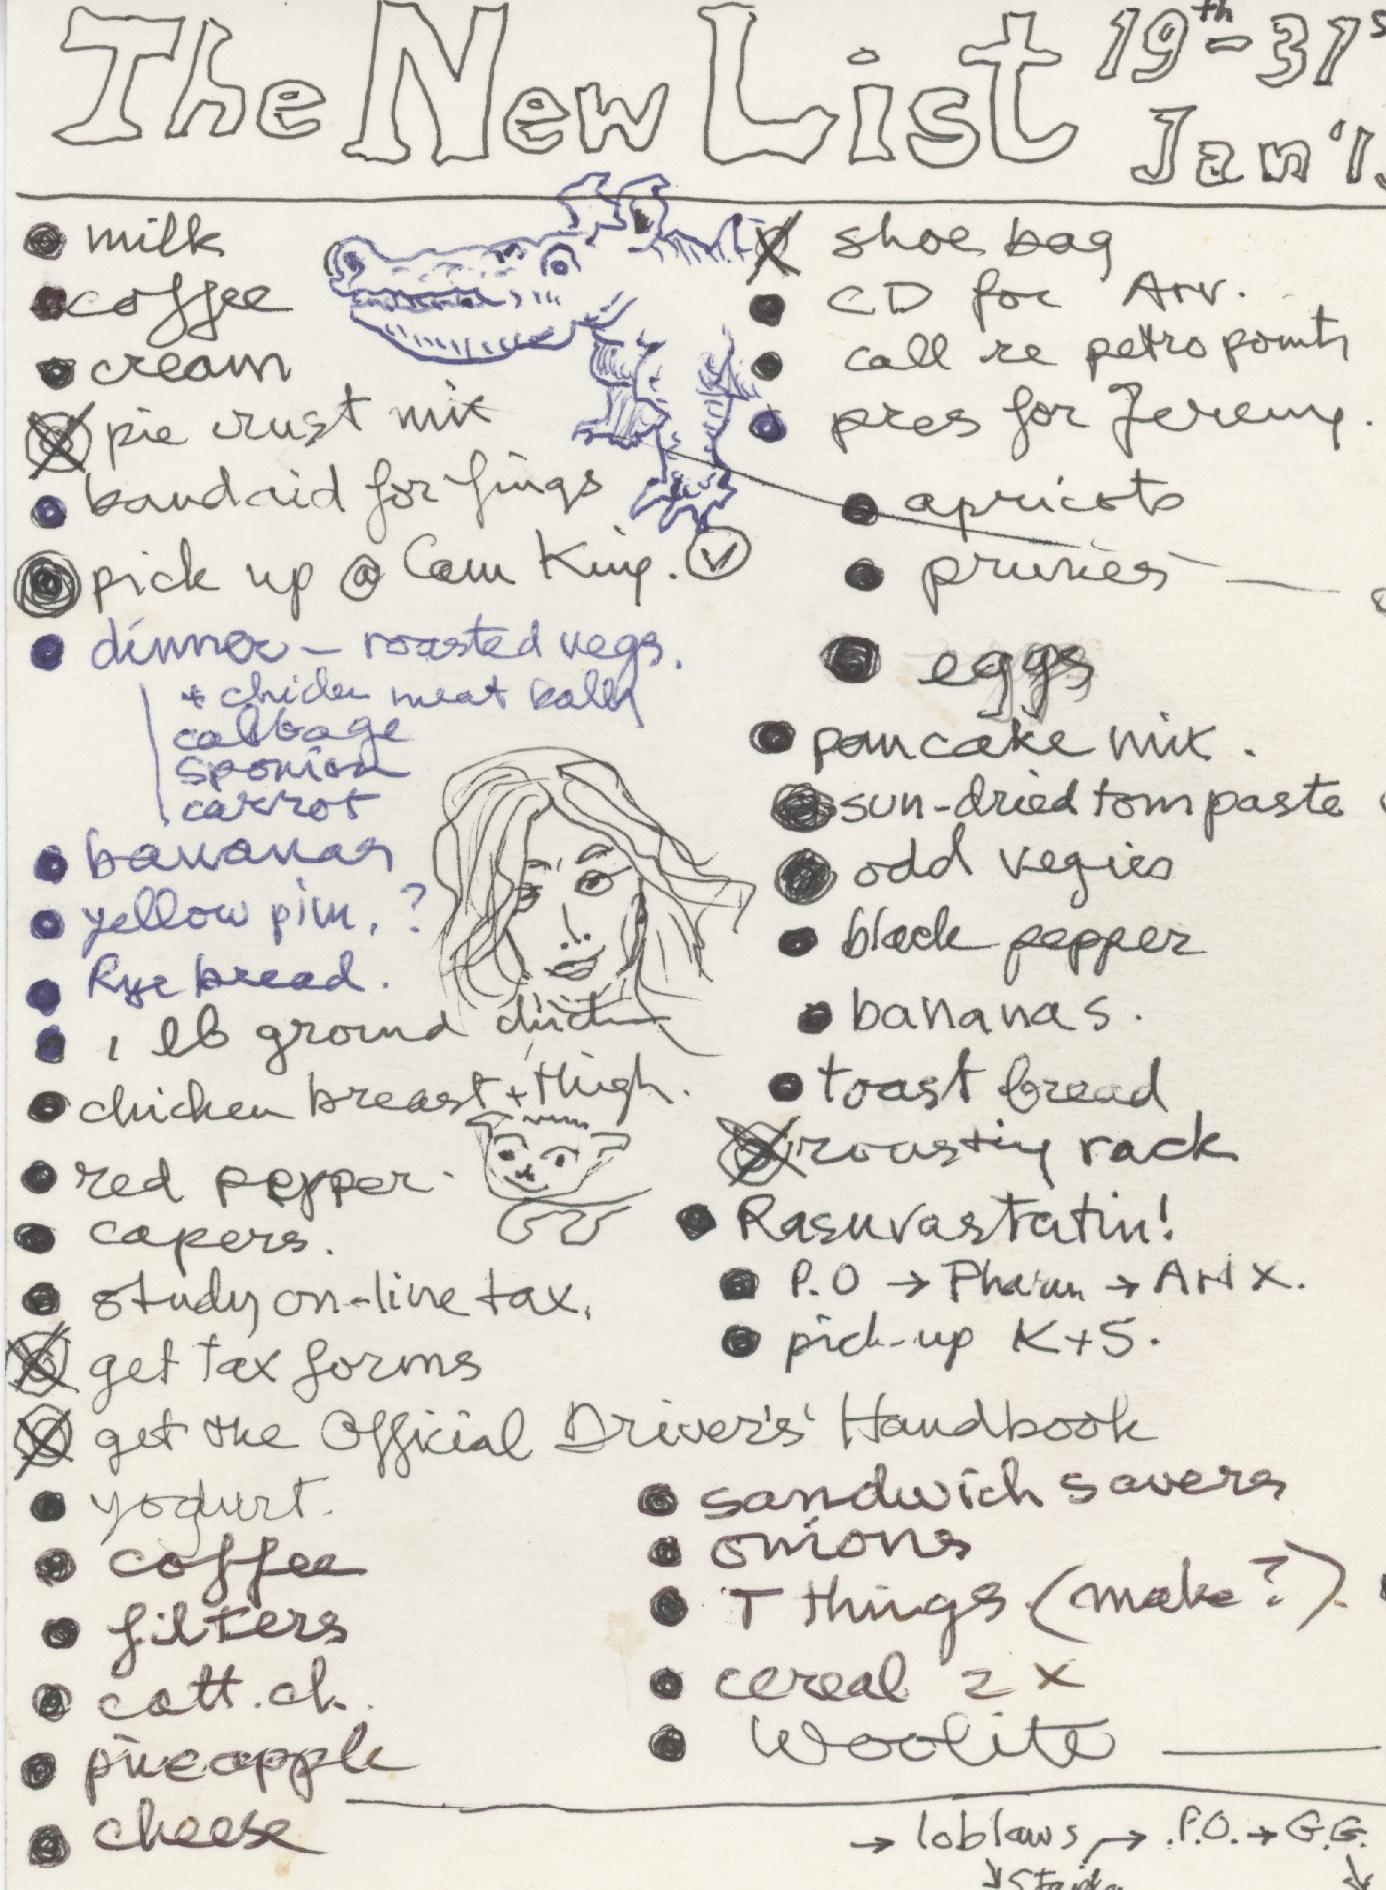 The New List 19th-31s
Jan '1
milk
coffee
cream
pie crust mix
bandaid for fings
pick up @ Cam King.
dinner - roasted vegs.
+ chicken meat balls
cabbage
sponion
carrot
bananas
yellow pim. ?
Rye bread.
1 lb ground chick
chicken breast + thigh.
red pepper.
capers.
study on-line tax.
get tax forms
get the Official Driver's' Handbook
yogurt.
coffee
filters
cott. ch.
pineapple
cheese
shoe bag
CD for Arv.
call re petro points
pres for Jeremy.
apricots
prunes
eggs
pancake mix.
sun-dried tom paste
odd vegies
black pepper
bananas.
toast bread
roasting rack
Rasuvastatin!
P.O → Pharm → ANX.
pick-up K+S.
sandwich savers
onions
T things (make?).
cereal 2 x
Woolite
→ loblaws → P.O. → G.G.